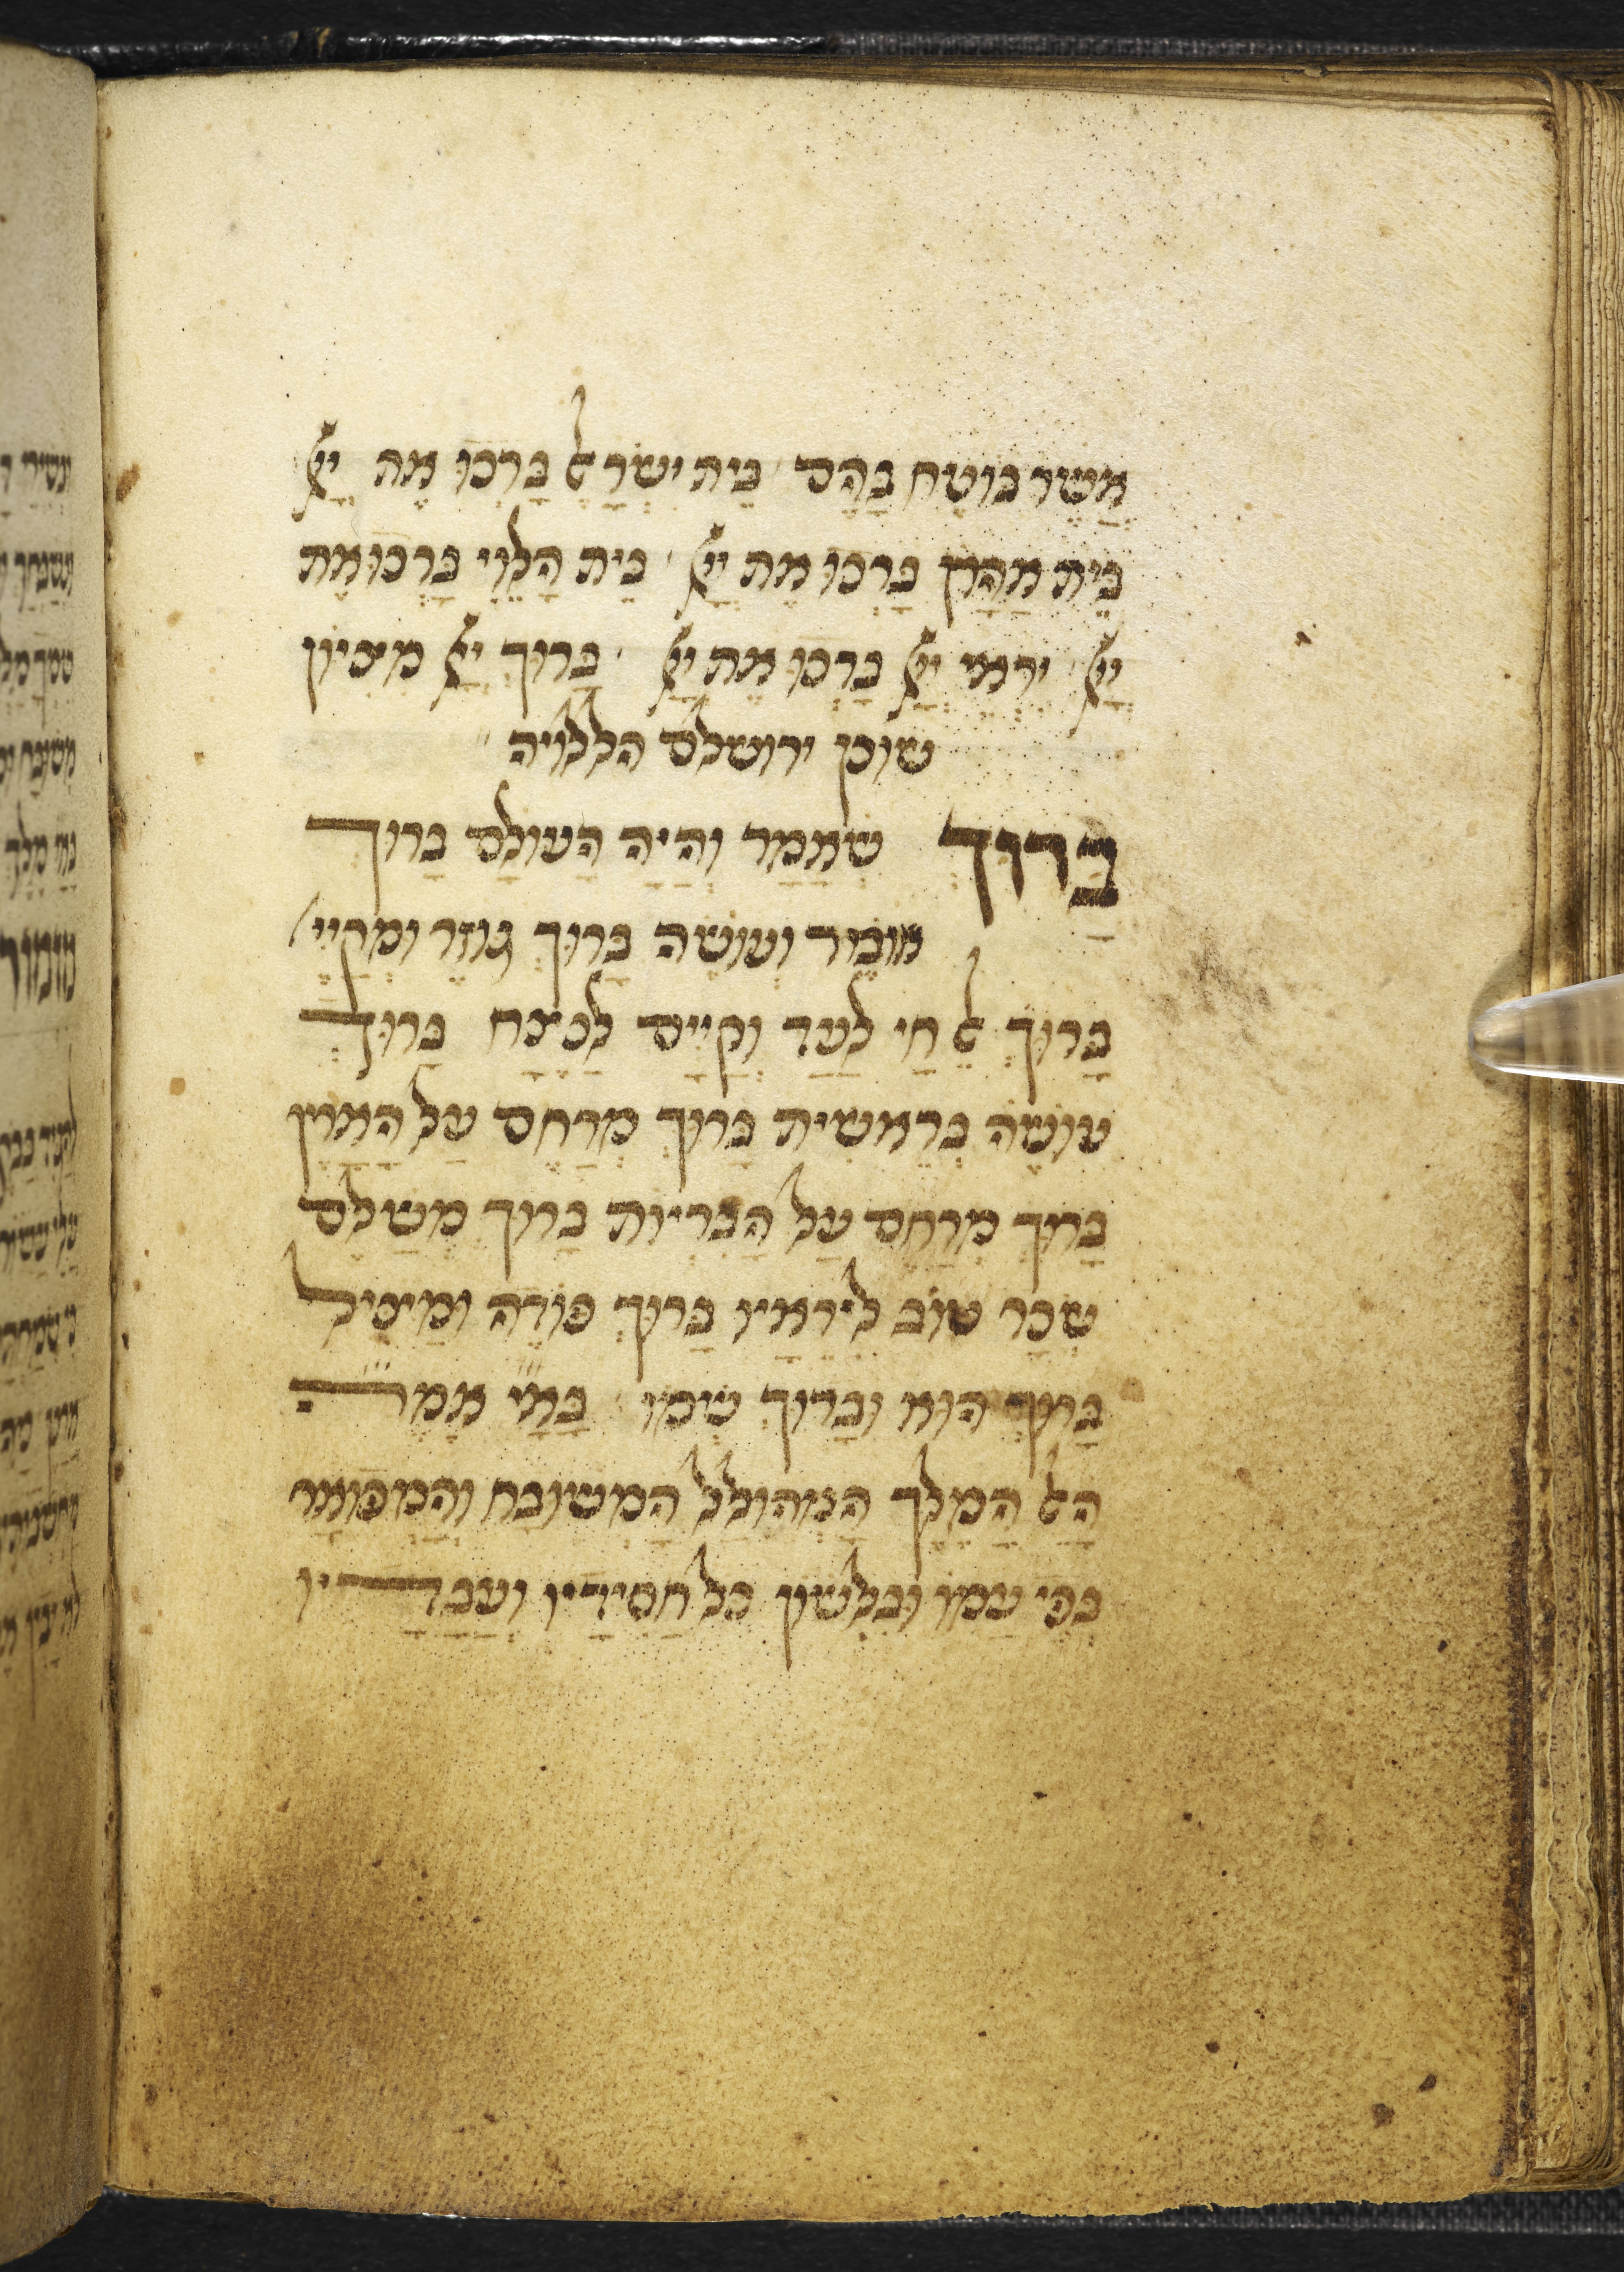 אשר בוטח בהם בית ישראל ברכו את יי
בית אהרן ברכו את יי בית הלוי ברכו את
יי יראי יי ברכו את יי ברוך יי מציון
שוכן ירושלם הללויה
ברוך שאמר והיה העולם ברוך
אומר ועושה ברוך גוזר ומקיי׳
ברוך אל חי לעד וקיים לנצח ברוך
עושה בראשית ברוך מרחם על הארץ
ברוך מרחם על הבריות ברוך משלם
שכר טוב ליראיו ברוך פודה ומציל
ברוך הוא וברוך שמו באיי אמה
האל המלך המהולל המשובח והמפואר
בפי עמו ובלשון כל חסידיו ועבדיו